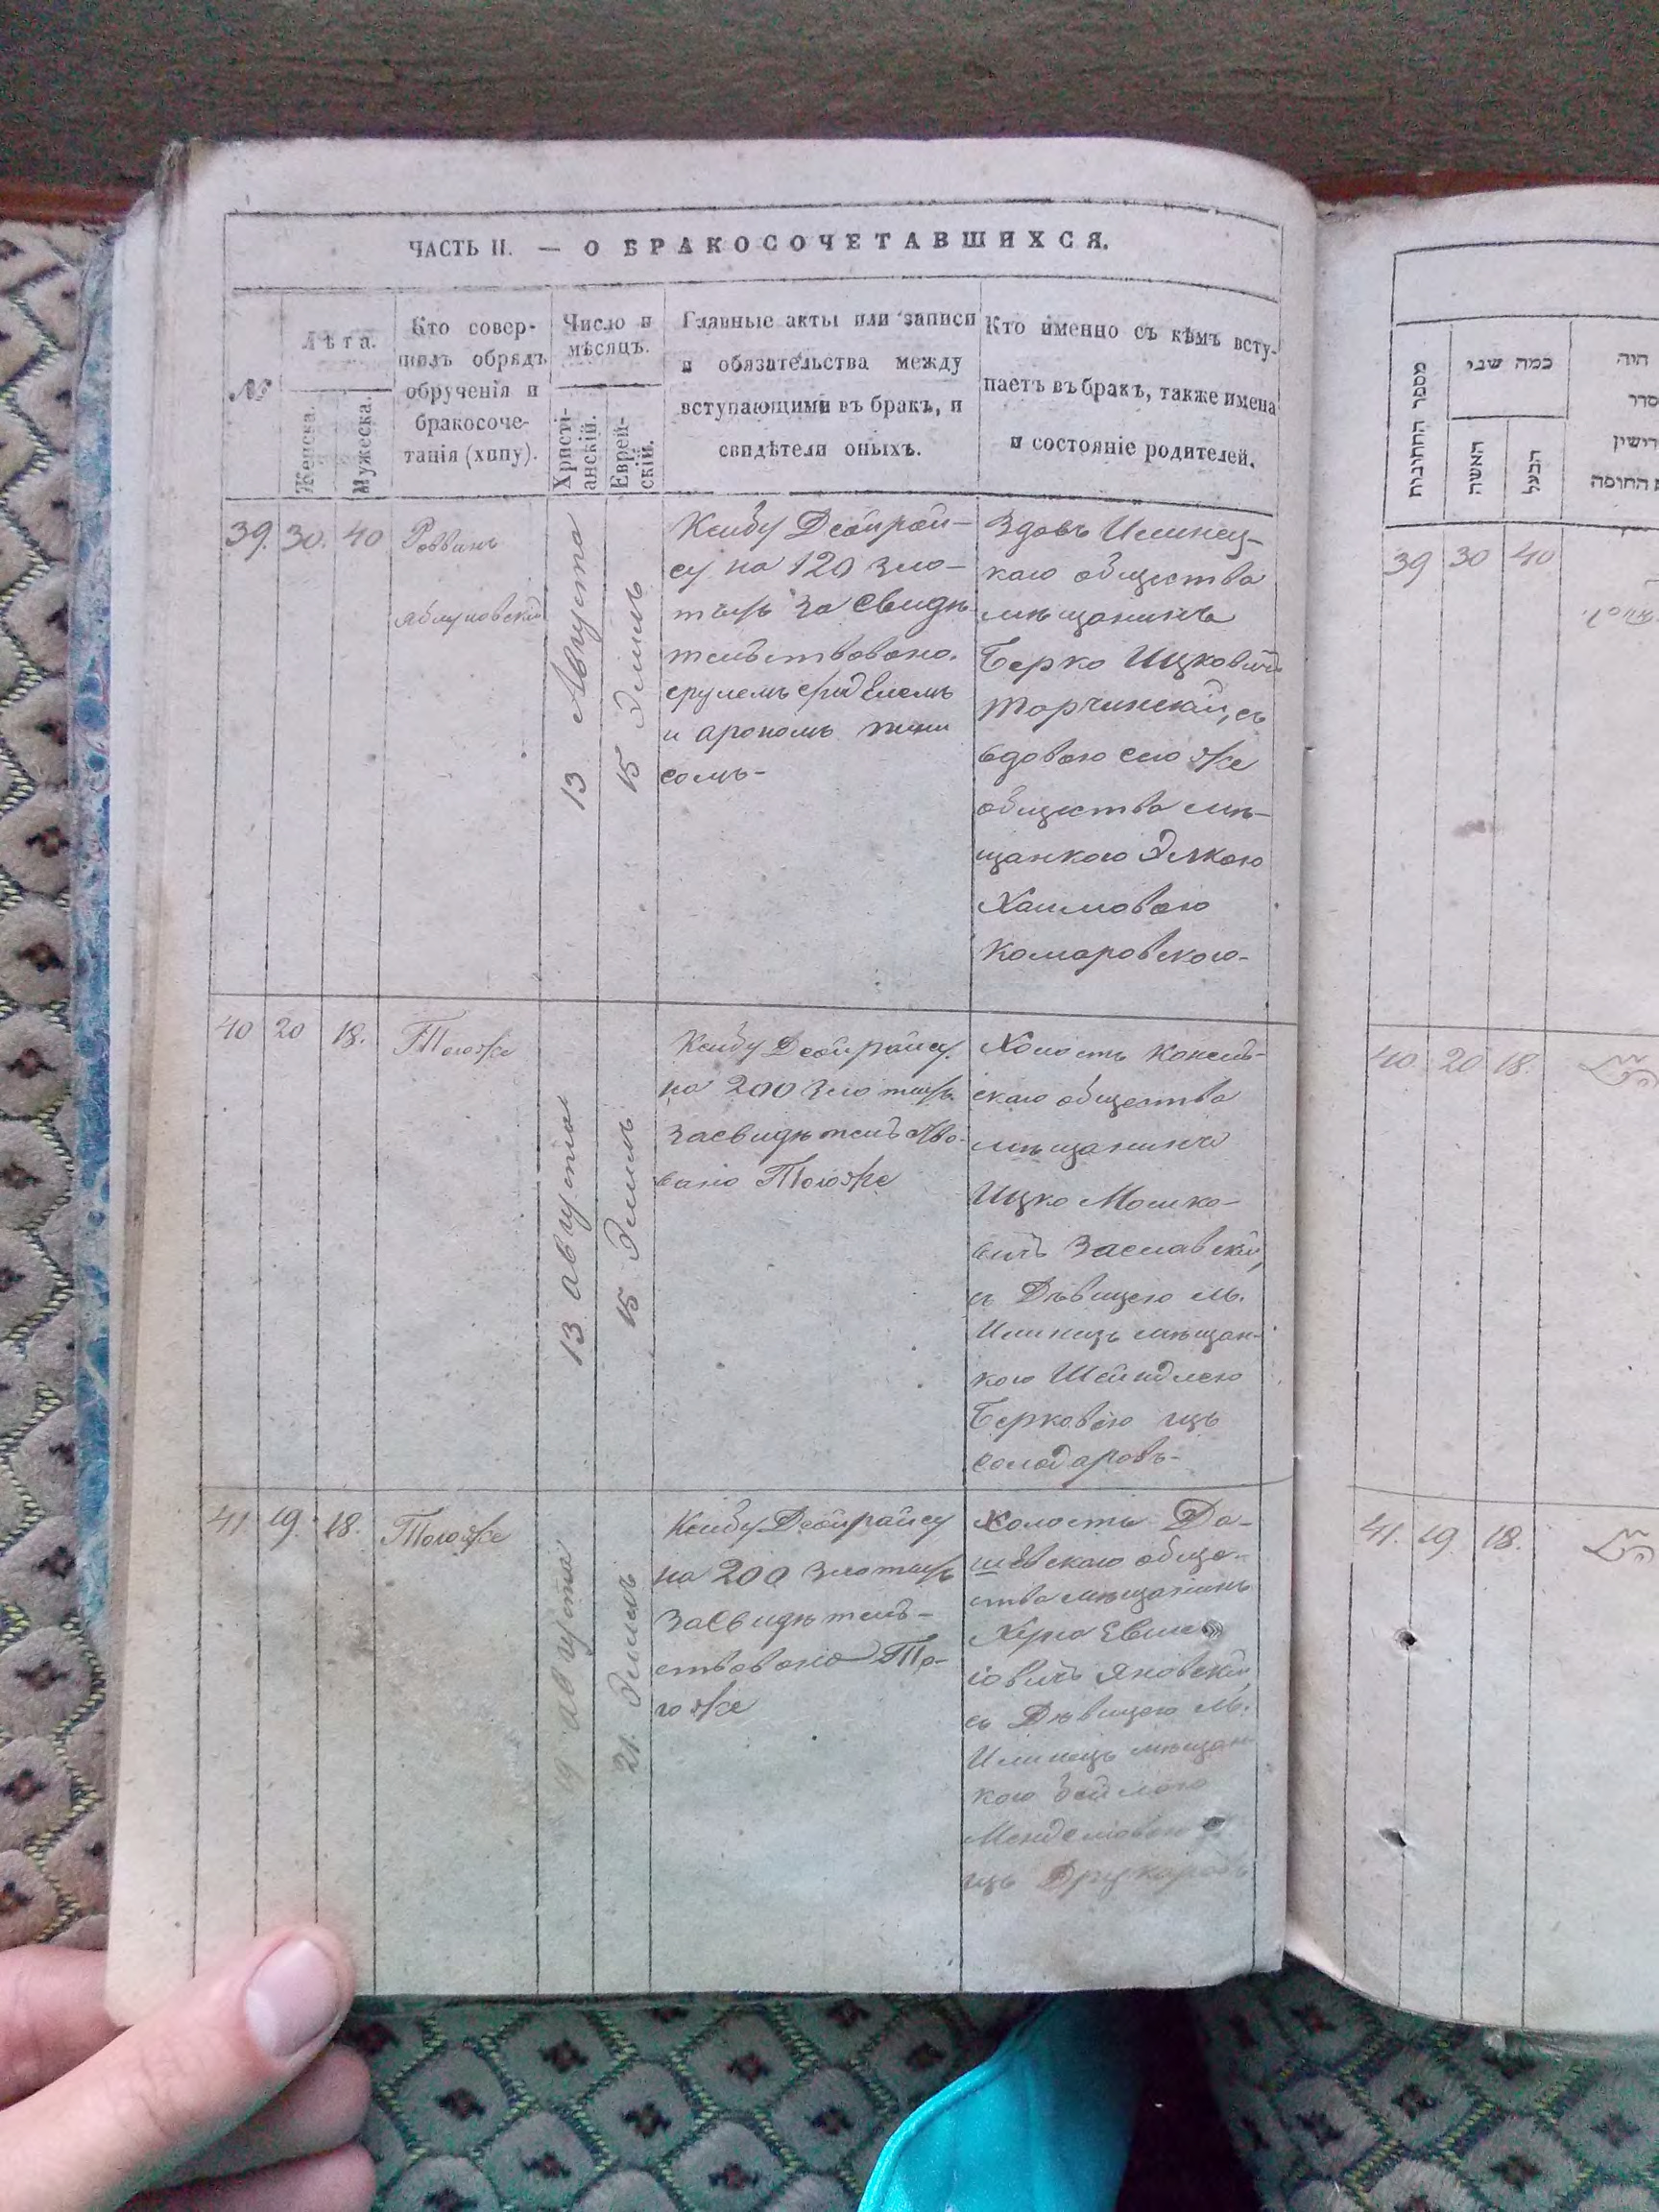 ЧАСТЬ II. — О БРАКОСОЧЕТАВШИХСЯ.
№
Лѣта.
Женска.
Мужеска.
Кто совер-
шилъ обрядъ
обрученія и
бракосоче-
танія (хипу).
Число и
мѣсяцъ.
Христі-
анскій.
Еврей-
скій.
Главные акты или записи
и обязательства между
вступающими въ бракъ, и
свидѣтели оныхъ.
Кто именно съ кѣмъ всту-
паетъ въ бракъ, также имена
и состояніе родителей.
39. 30. 40
Раввинъ
Яблуновский
13 Августа
15 Элилъ
на 120 зло-
тыхъ засвидѣ
тельствовано.
и арономъ
сомъ-
Вдовъ Илинец-
каго общества
мѣщанинъ
Берко Ицковичъ
Торчинский, съ
вдовою сего же
общества мѣ-
щанкою Элкою
Хаимовою
Комаровскою-
40 20 18.
Тогоже
13 августа
15 Элилъ
на 200 злотыхъ
засвидѣтельство-
вано Тогоже
Холостъ
скаго общества
мѣщанинъ
Ицко Мошко-
вичъ Заславский,
съ Дѣвицею м.
Илинецъ мѣщан-
кою Шейндлею
Берковою изъ
солодаровъ-
41 19. 18.
Тогоже
19 августа
21. Элилъ
на 200 злотыхъ
засвидѣтель-
ствовано То-
гоже
холостъ Да-
шевскаго обще-
ства мѣщанинъ
Яновский
съ Дѣвицею м.
Илинецъ мѣщан
кою
Менделиовою
изъ Друкаровъ
מספר החתונות
כמה שני
האשה
הבעל
היה
סדר
החופה
39 30 40
40. 20 18.
41. 19. 18.